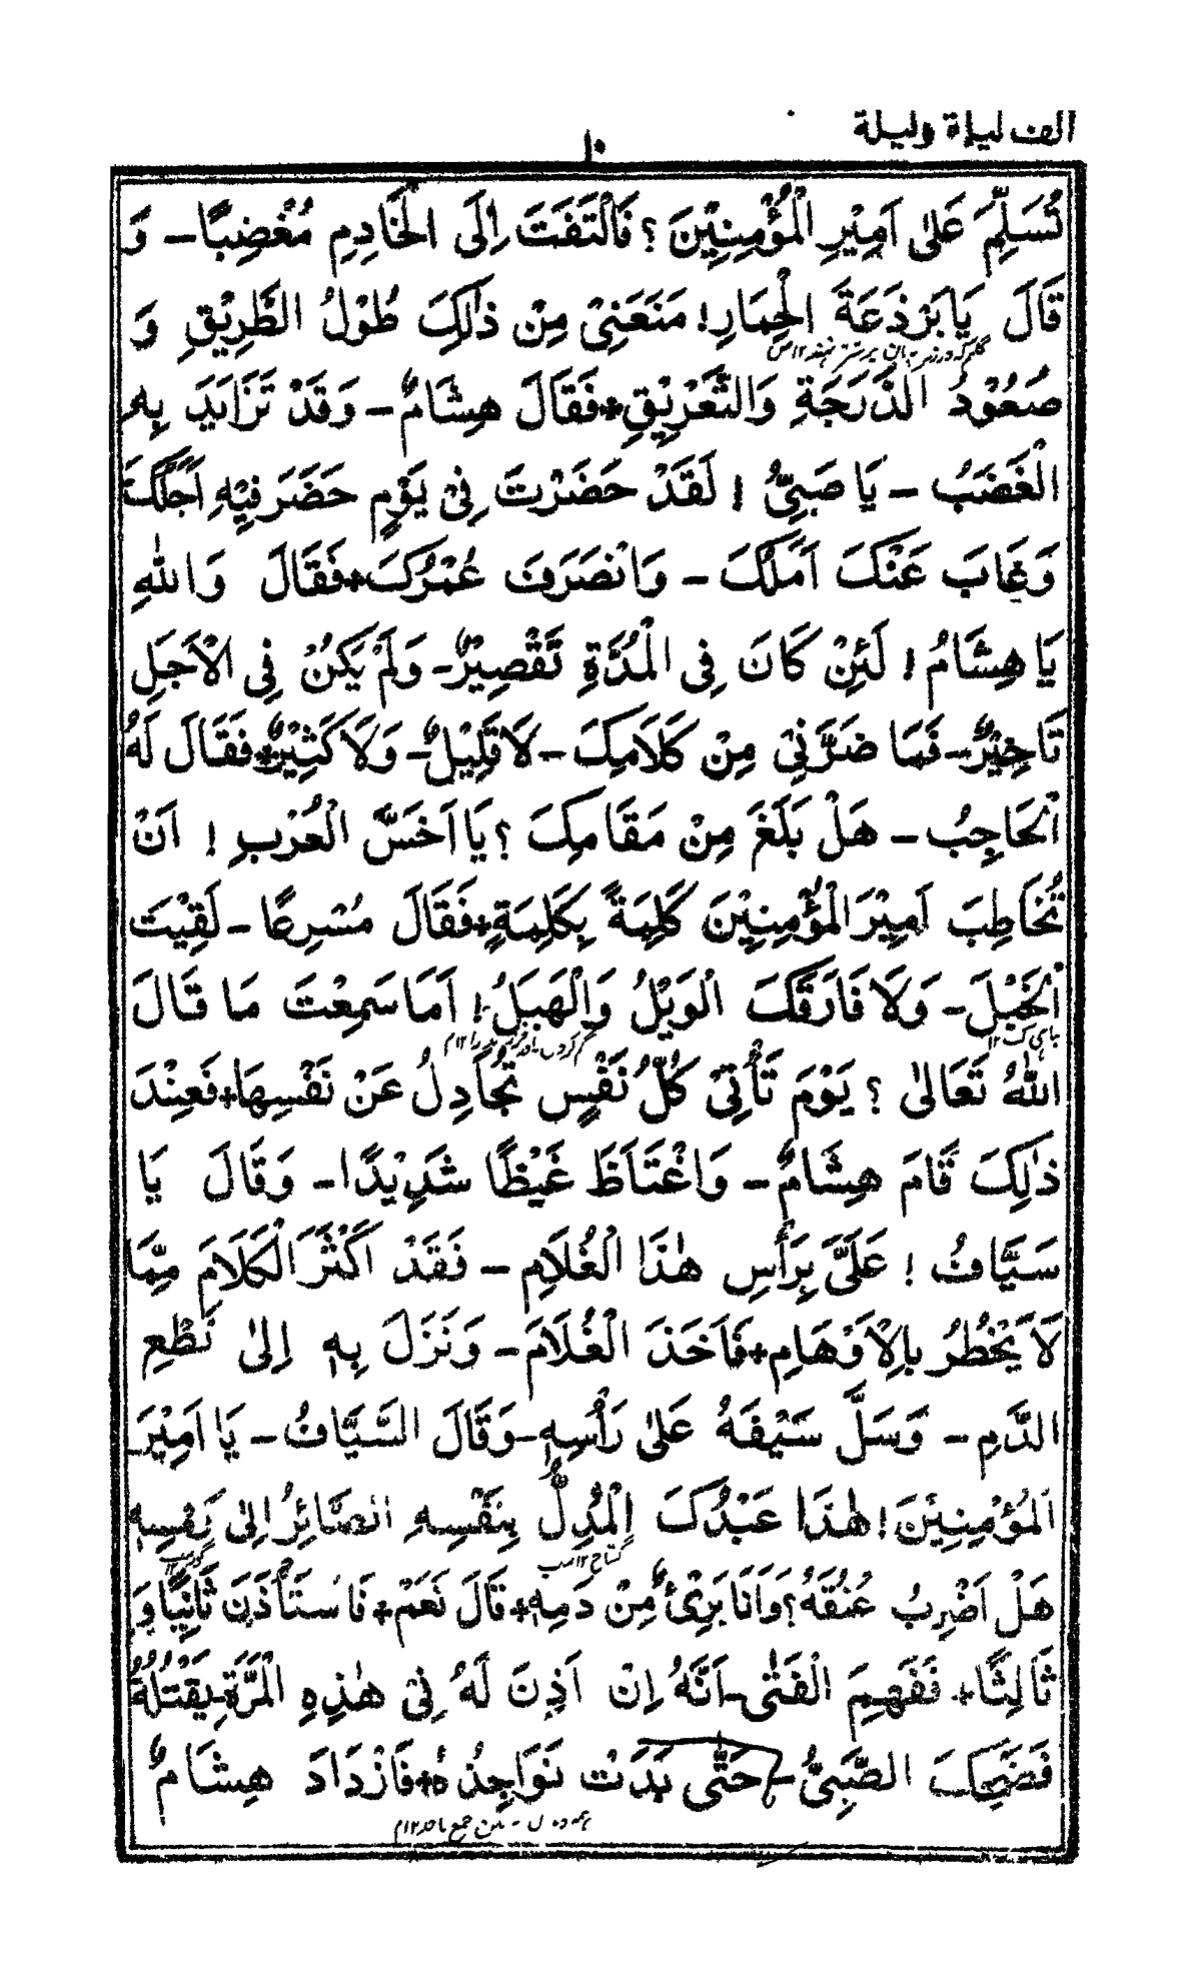 الف ليلة وليلة
١٠
تُسَلِّمَ عَلىٰ اَمِيْرِ الْمُؤْمِنِيْنَ ؟ فَالْتَفَتَ اِلَى الْخَادِمِ مُغْضِبًا - وَ
قَالَ يَا بَرْذَعَةَ الْحِمَارِ! مَنَعَنِىْ مِنْ ذٰلِكَ طُوْلُ الطَّرِيْقِ وَ
صُعُوْدُ الدَّرَجَةِ وَالتَّعْرِيْقِ + فَقَالَ هِشَامٌ - وَقَدْ تَزَايَدَ بِهِ
الْغَضَبُ - يَا صَبِىُّ ! لَقَدْ حَضَرْتَ فِىْ يَوْمٍ حَضَرَ فِيْهِ اَجَلُكَ
وَغَابَ عَنْكَ اَمَلُكَ - وَانْصَرَفَ عُمْرُكَ + فَقَالَ وَاللهِ
يَا هِشَامُ ! لَئِنْ كَانَ فِى الْمُدَّةِ تَقْصِيْرٌ - وَلَمْ يَكُنْ فِى الْاَجَلِ
تَاخِيْرٌ - فَمَا ضَرَّنِىْ مِنْ كَلَامِكَ - لَا قَلِيْلٌ - وَلَا كَثِيْرٌ + فَقَالَ لَهُ
الْحَاجِبُ - هَلْ بَلَغَ مِنْ مَقَامِكَ ؟ يَا اَخَسَّ الْعُرْبِ ! اَنْ
تُخَاطِبَ اَمِيْرَ الْمُؤْمِنِيْنَ كَلِمَةً بِكَلِمَةٍ + فَقَالَ مُسْرِعًا - لَقِيْتَ
الْخَبْلَ - وَلَا فَارَقَكَ الْوَيْلُ وَالْهَبَلُ ! اَمَا سَمِعْتَ مَا قَالَ
اللهُ تَعَالىٰ ؟ يَوْمَ تَأْتِىْ كُلُّ نَفْسٍ تُجَادِلُ عَنْ نَفْسِهَا + فَعِنْدَ
ذٰلِكَ قَامَ هِشَامٌ - وَاغْتَاظَ غَيْظًا شَدِيْدًا - وَقَالَ يَا
سَيَّافُ ! عَلَىَّ بِرَأْسِ هٰذَا الْغُلَامِ - فَقَدْ اَكْثَرَ الْكَلَامَ مِمَّا
لَا يَخْطُرُ بِالْاَوْهَامِ + فَاَخَذَ الْغُلَامَ - وَنَزَلَ بِهِ اِلىٰ نَطْعِ
الدَّمِ - وَسَلَّ سَيْفَهُ عَلىٰ رَأْسِهِ - وَقَالَ السَّيَّافُ - يَا اَمِيْرَ
الْمُؤْمِنِيْنَ ! هٰذَا عَبْدُكَ الْمُدِلُّ بِنَفْسِهِ الصَّائِرُ اِلىٰ
هَلْ اَضْرِبُ عُنُقَهُ ؟ وَاَنَا بَرِىْءٌ مِنْ دَمِهِ + قَالَ نَعَمْ + فَاسْتَأْذَنَ ثَانِيًا وَ
ثَالِثًا + فَفَهِمَ الْفَتٰى - اَنَّهُ اِنْ اَذِنَ لَهُ فِىْ هٰذِهِ الْمَرَّةِ - يَقْتُلُهُ
فَضَحِكَ الصَّبِىُّ - حَتّٰى بَدَتْ نَوَاجِذُهُ + فَازْدَادَ هِشَامٌ